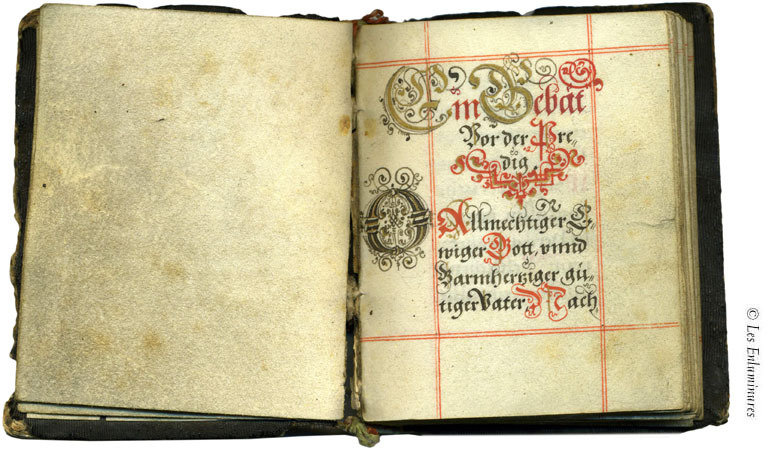 Ein Gebät
Vor der Pre=
dig
O Allmechtiger E=
wiger Gott, vnnd
Barmhertziger gü=
tiger Vater Mach
© Les Enluminures